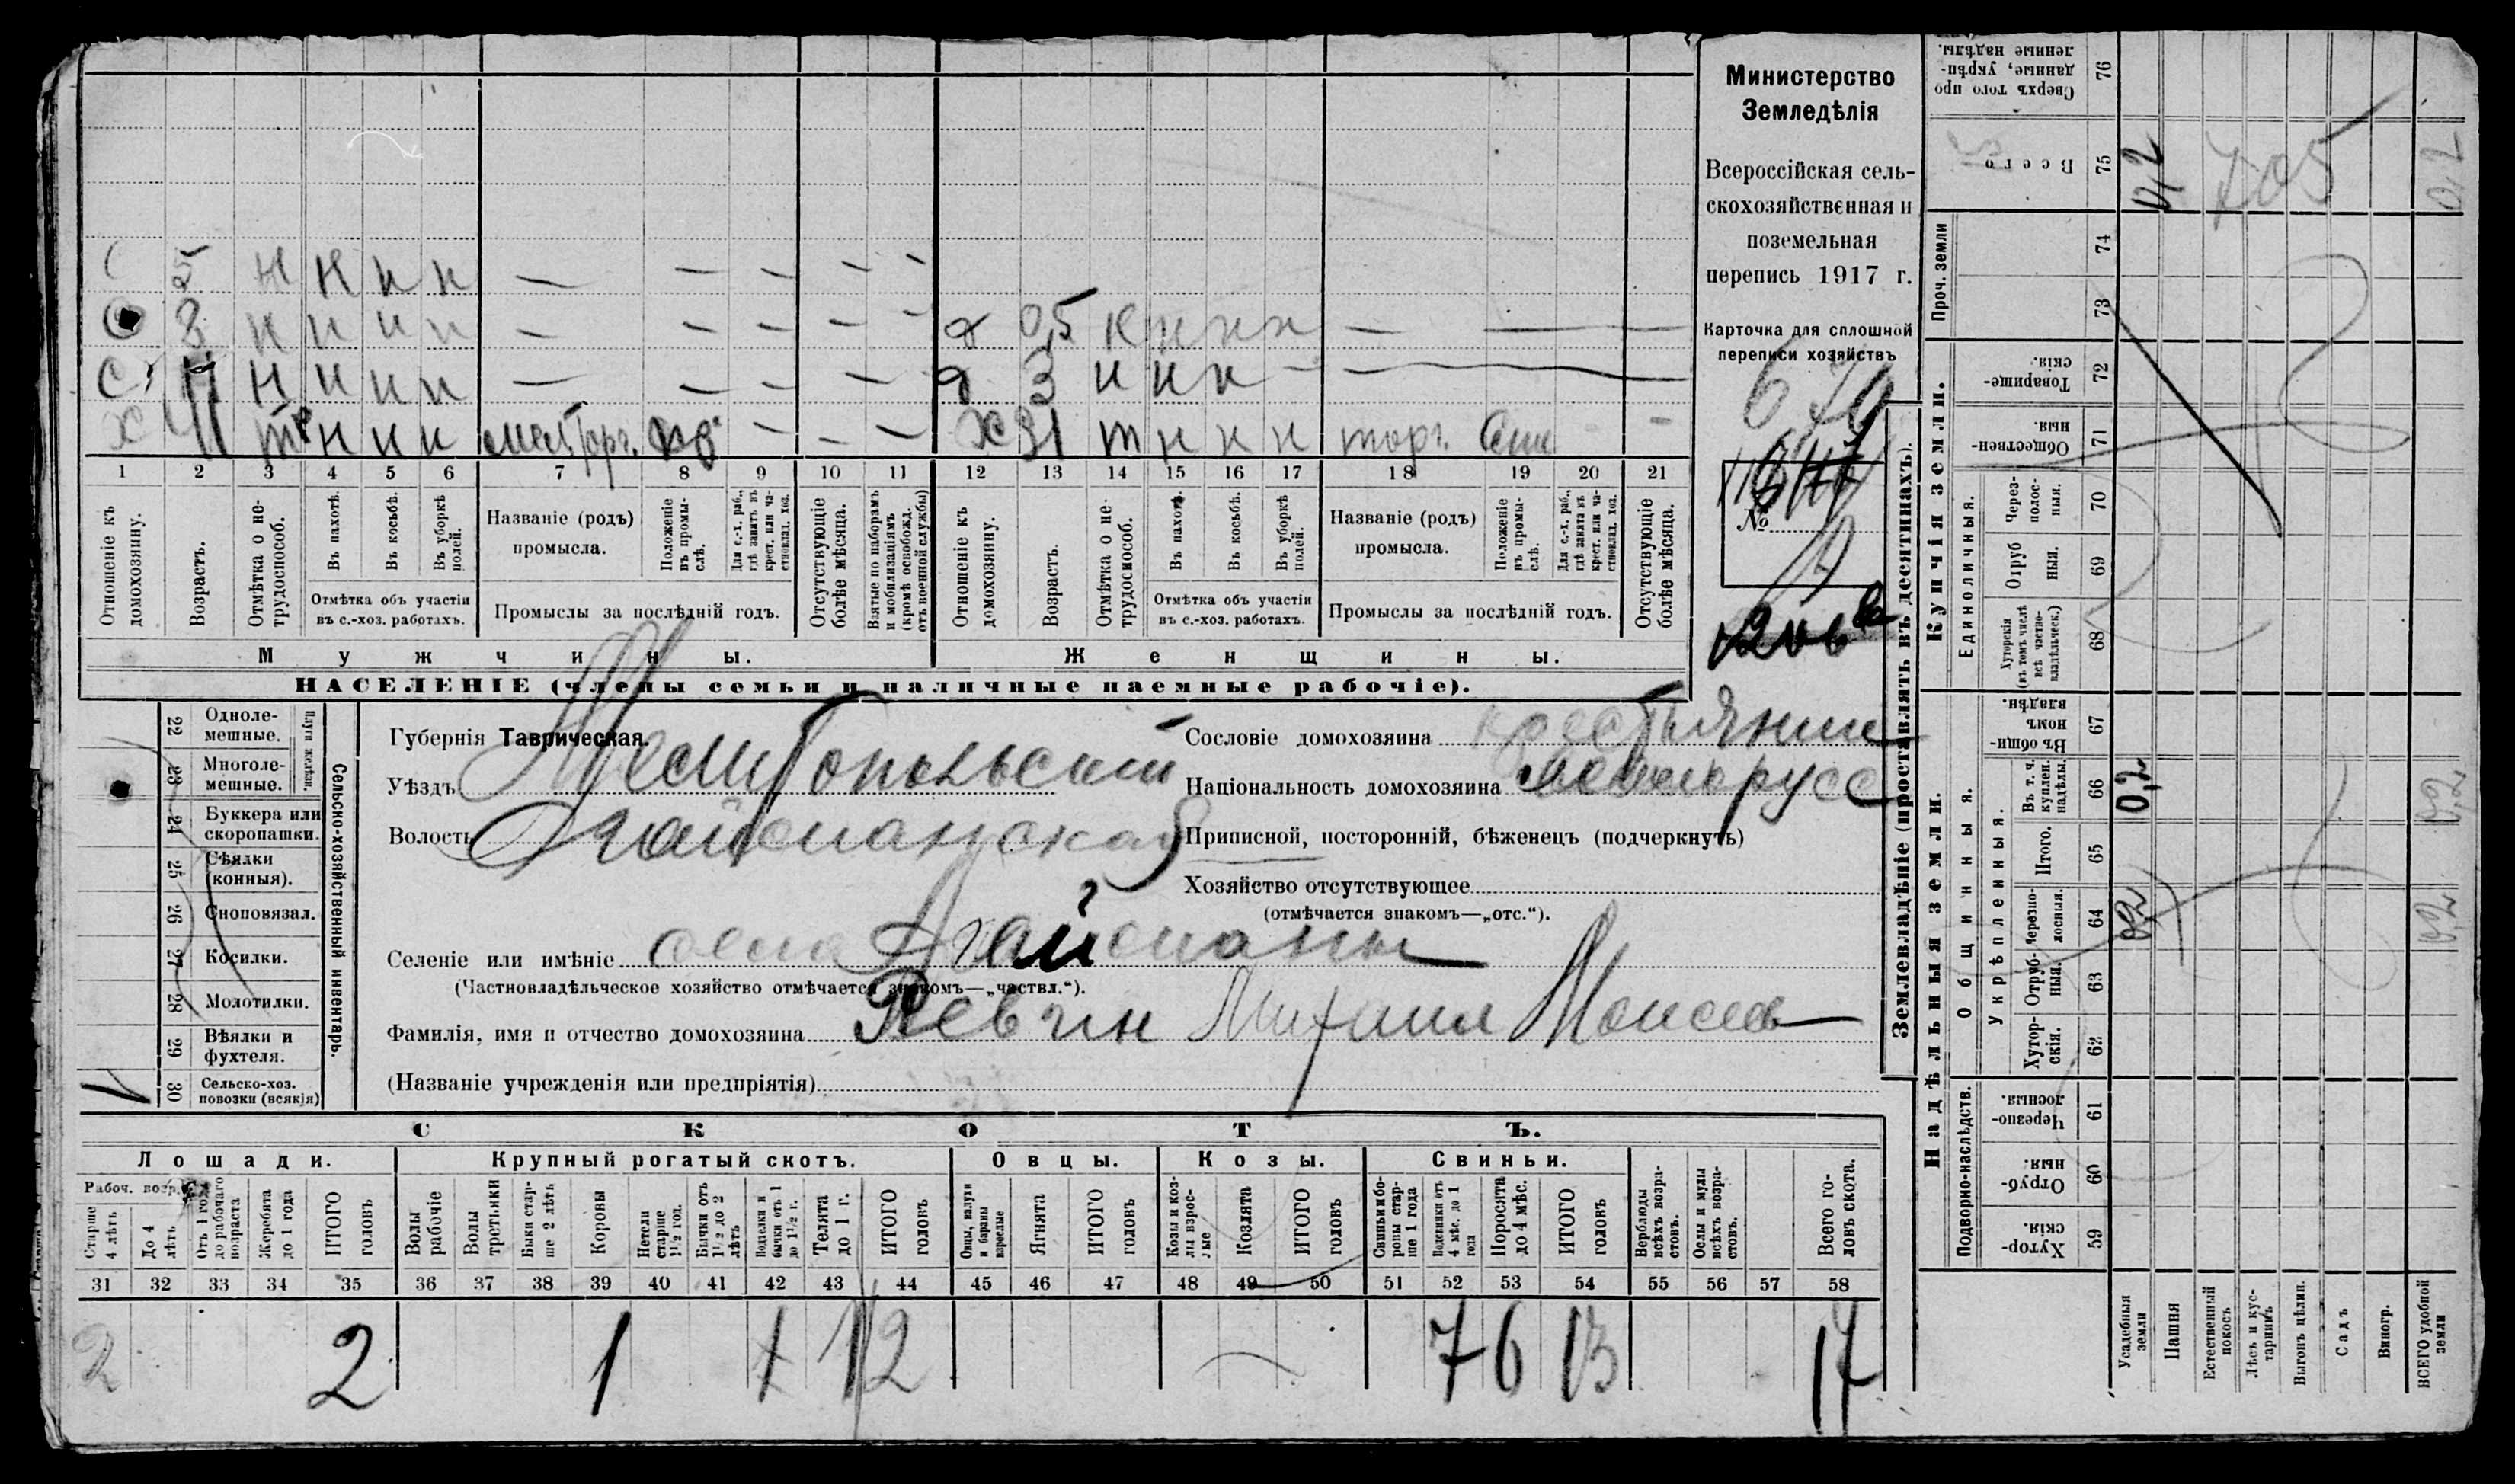 Министерство
Земледѣлія
Всероссійская сель-
скохозяйственная и
поземельная
перепись 1917 г.
Карточка для сплошной
переписи хозяйствъ
670
№
С 5 н н н н — — — — —
С 8 н н н н — — — — — д 0,5 н н н н — —
С 11 н н н н — — — — — д 3 н н н — —
х 41 н н н мел. торг. хоз — — — х 31 т н н н торг.
1 2 3 4 5 6 7 8 9 10 11 12 13 14 15 16 17 18 19 20 21
Отношеніе къ домохозяину.
Возрастъ.
Отмѣтка о не-трудоспособ.
Въ пахотѣ.
Въ косьбѣ.
Въ уборкѣ полей.
Отмѣтка объ участіи
въ с.-хоз. работахъ.
Названіе (родъ)
промысла.
Положеніе въ промы-слѣ.
Для с.-х. раб., гдѣ занятъ въ крест. или ча-стновлад. хоз.
Промыслы за послѣдній годъ.
Отсутствующіе болѣе мѣсяца.
Взятые по наборамъ и мобилизаціямъ (кромѣ освобожд. отъ военной службы)
Отношеніе къ домохозяину.
Возрастъ.
Отмѣтка о не-трудоспособ.
Въ пахотѣ.
Въ косьбѣ.
Въ уборкѣ полей.
Отмѣтка объ участіи
въ с.-хоз. работахъ.
Названіе (родъ)
промысла.
Положеніе въ промы-слѣ.
Для с.-х. раб., гдѣ занята въ крест. или ча-стновлад. хоз.
Промыслы за послѣдній годъ.
Отсутствующіе болѣе мѣсяца.
Мужчины. Женщины.
НАСЕЛЕНІЕ (члены семьи и наличные наемные рабочіе).
Сельско-хозяйственный инвентарь.
Плуги желѣзн.
22 Одноле-мешные.
23 Многоле-мешные.
24 Буккера или скоропашки.
25 Сѣялки (конныя).
26 Сноповязал.
27 Косилки.
28 Молотилки.
29 Вѣялки и фухтеля.
30 Сельско-хоз. повозки (всякія) 1
Губернія Таврическая.
Уѣздъ Мелитопольскій
Волость Агайманская
Сословіе домохозяина крестьянин
Національность домохозяина малорусс
Приписной, посторонній, бѣженецъ (подчеркнуть)
Хозяйство отсутствующее
(отмѣчается знакомъ—„отс.“).
Селеніе или имѣніе село Агайманы
(Частновладѣльческое хозяйство отмѣчается знакомъ—„частвл.“).
Фамилія, имя и отчество домохозяина Ревчин Михаил Моисеев
(Названіе учрежденія или предпріятія)
СКОТЪ.
Лошади. Крупный рогатый скотъ. Овцы. Козы. Свиньи.
Рабоч. возр.
Старше 4 лѣтъ
До 4 лѣтъ
Отъ 1 года до рабочаго возраста
Жеребята до 1 года
ИТОГО головъ
Волы рабочіе
Волы третьяки
Быки стар-ше 2 лѣтъ
Коровы
Нетели старше 1½ год.
Бычки отъ 1½ до 2 лѣтъ
Подтелки и бычки отъ 1 до 1½ г.
Телята до 1 г.
ИТОГО головъ
Овцы, валухи и бараны взрослые
Ягнята
ИТОГО головъ
Козы и коз-лы взрос-лые
Козлята
ИТОГО головъ
Свиньи и бо-ровы стар-ше 1 года
Подсвинки отъ 4 мѣс. до 1 года
Поросята до 4 мѣс.
ИТОГО головъ
Верблюды всѣхъ возра-стовъ.
Ослы и мулы всѣхъ возра-стовъ.
Всего го-ловъ скота.
31 32 33 34 35 36 37 38 39 40 41 42 43 44 45 46 47 48 49 50 51 52 53 54 55 56 57 58
2 2 1 1 2 7 6 13 17
Землевладѣніе (проставлять въ десятинахъ).
Надѣльныя земли.
Купчія земли.
Проч. земли
Подворно-наслѣдств.
Общинныя.
Укрѣпленныя.
Единоличныя.
Хутор-скія. 59
Отруб-ныя. 60
Черезпо-лосныя. 61
Хутор-скія. 62
Отруб-ныя. 63
Черезпо-лосныя. 64
Итого. 65
Въ т. ч. куплен. надѣлы. 66
Въ общи-номъ владѣн. 67
Хуторскія (въ томъ числѣ всѣ частно-владѣльческ.) 68
Отруб ныя. 69
Через-полос-ныя. 70
Обществен-ныя. 71
Товарище-скія. 72
73
74
Всего 75
Сверхъ того про данные, укрѣп-ленные надѣлы. 76
Усадебныя земли 0,2 0,2 0,2
Пашня
Естественный покосъ
Лѣсъ и кус-тарникъ
Выгонъ цѣлин.
Садъ
Виногр.
ВСЕГО удобной земли 0,2 0,2 0,2
705